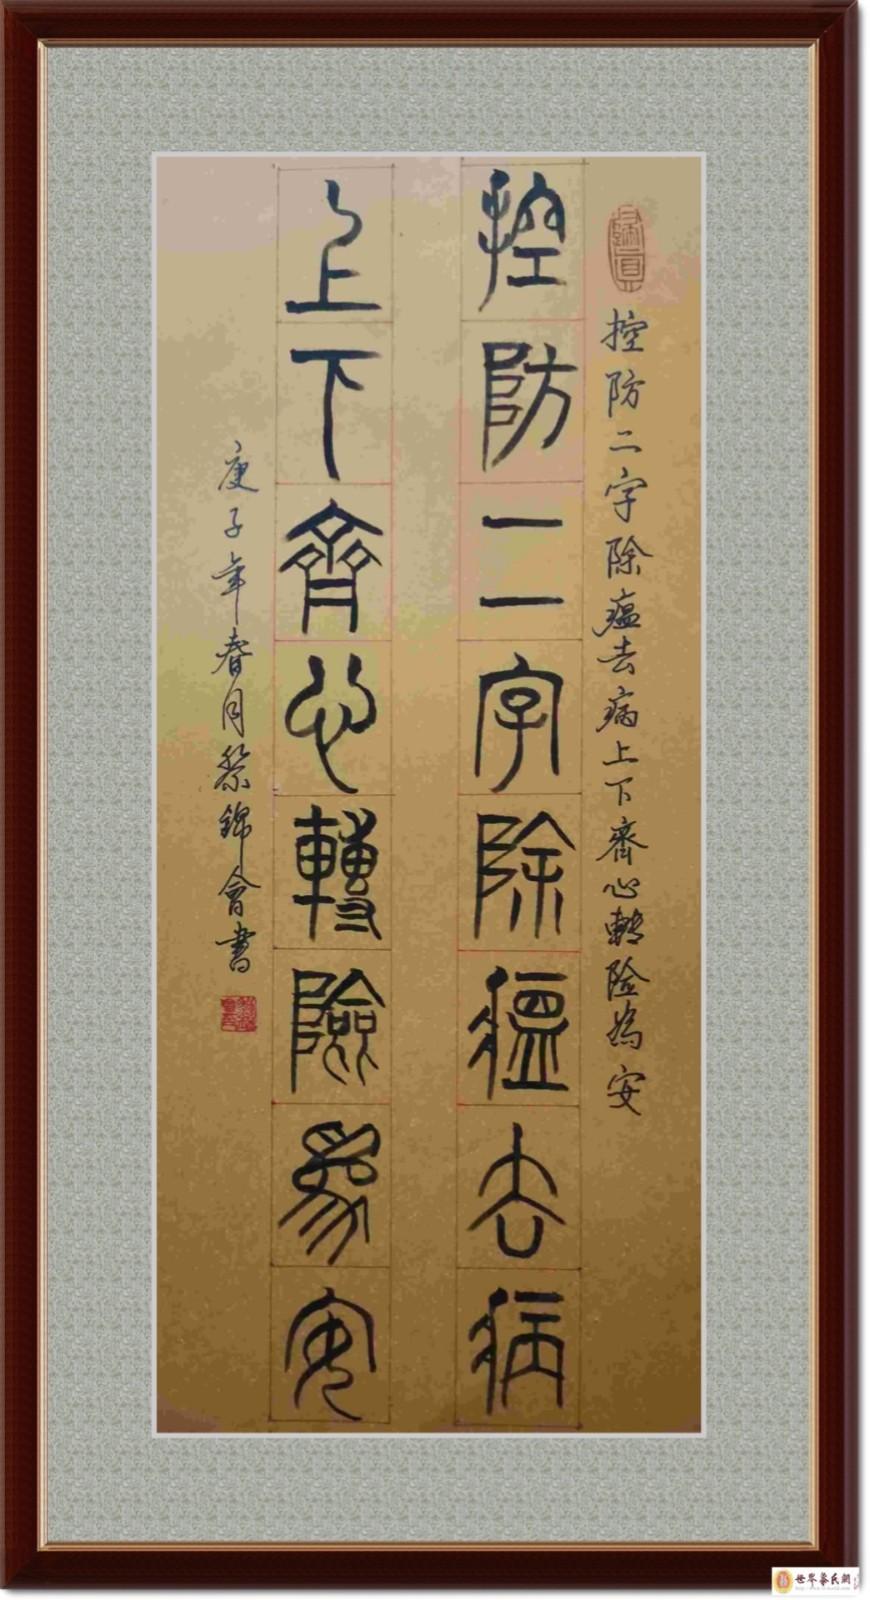 控防二字除瘟去病上下齊心轉险為安
控防二字除瘟去病
上下齊心轉險為安
庚子年春月蔡錦會書
世界蔡氏網